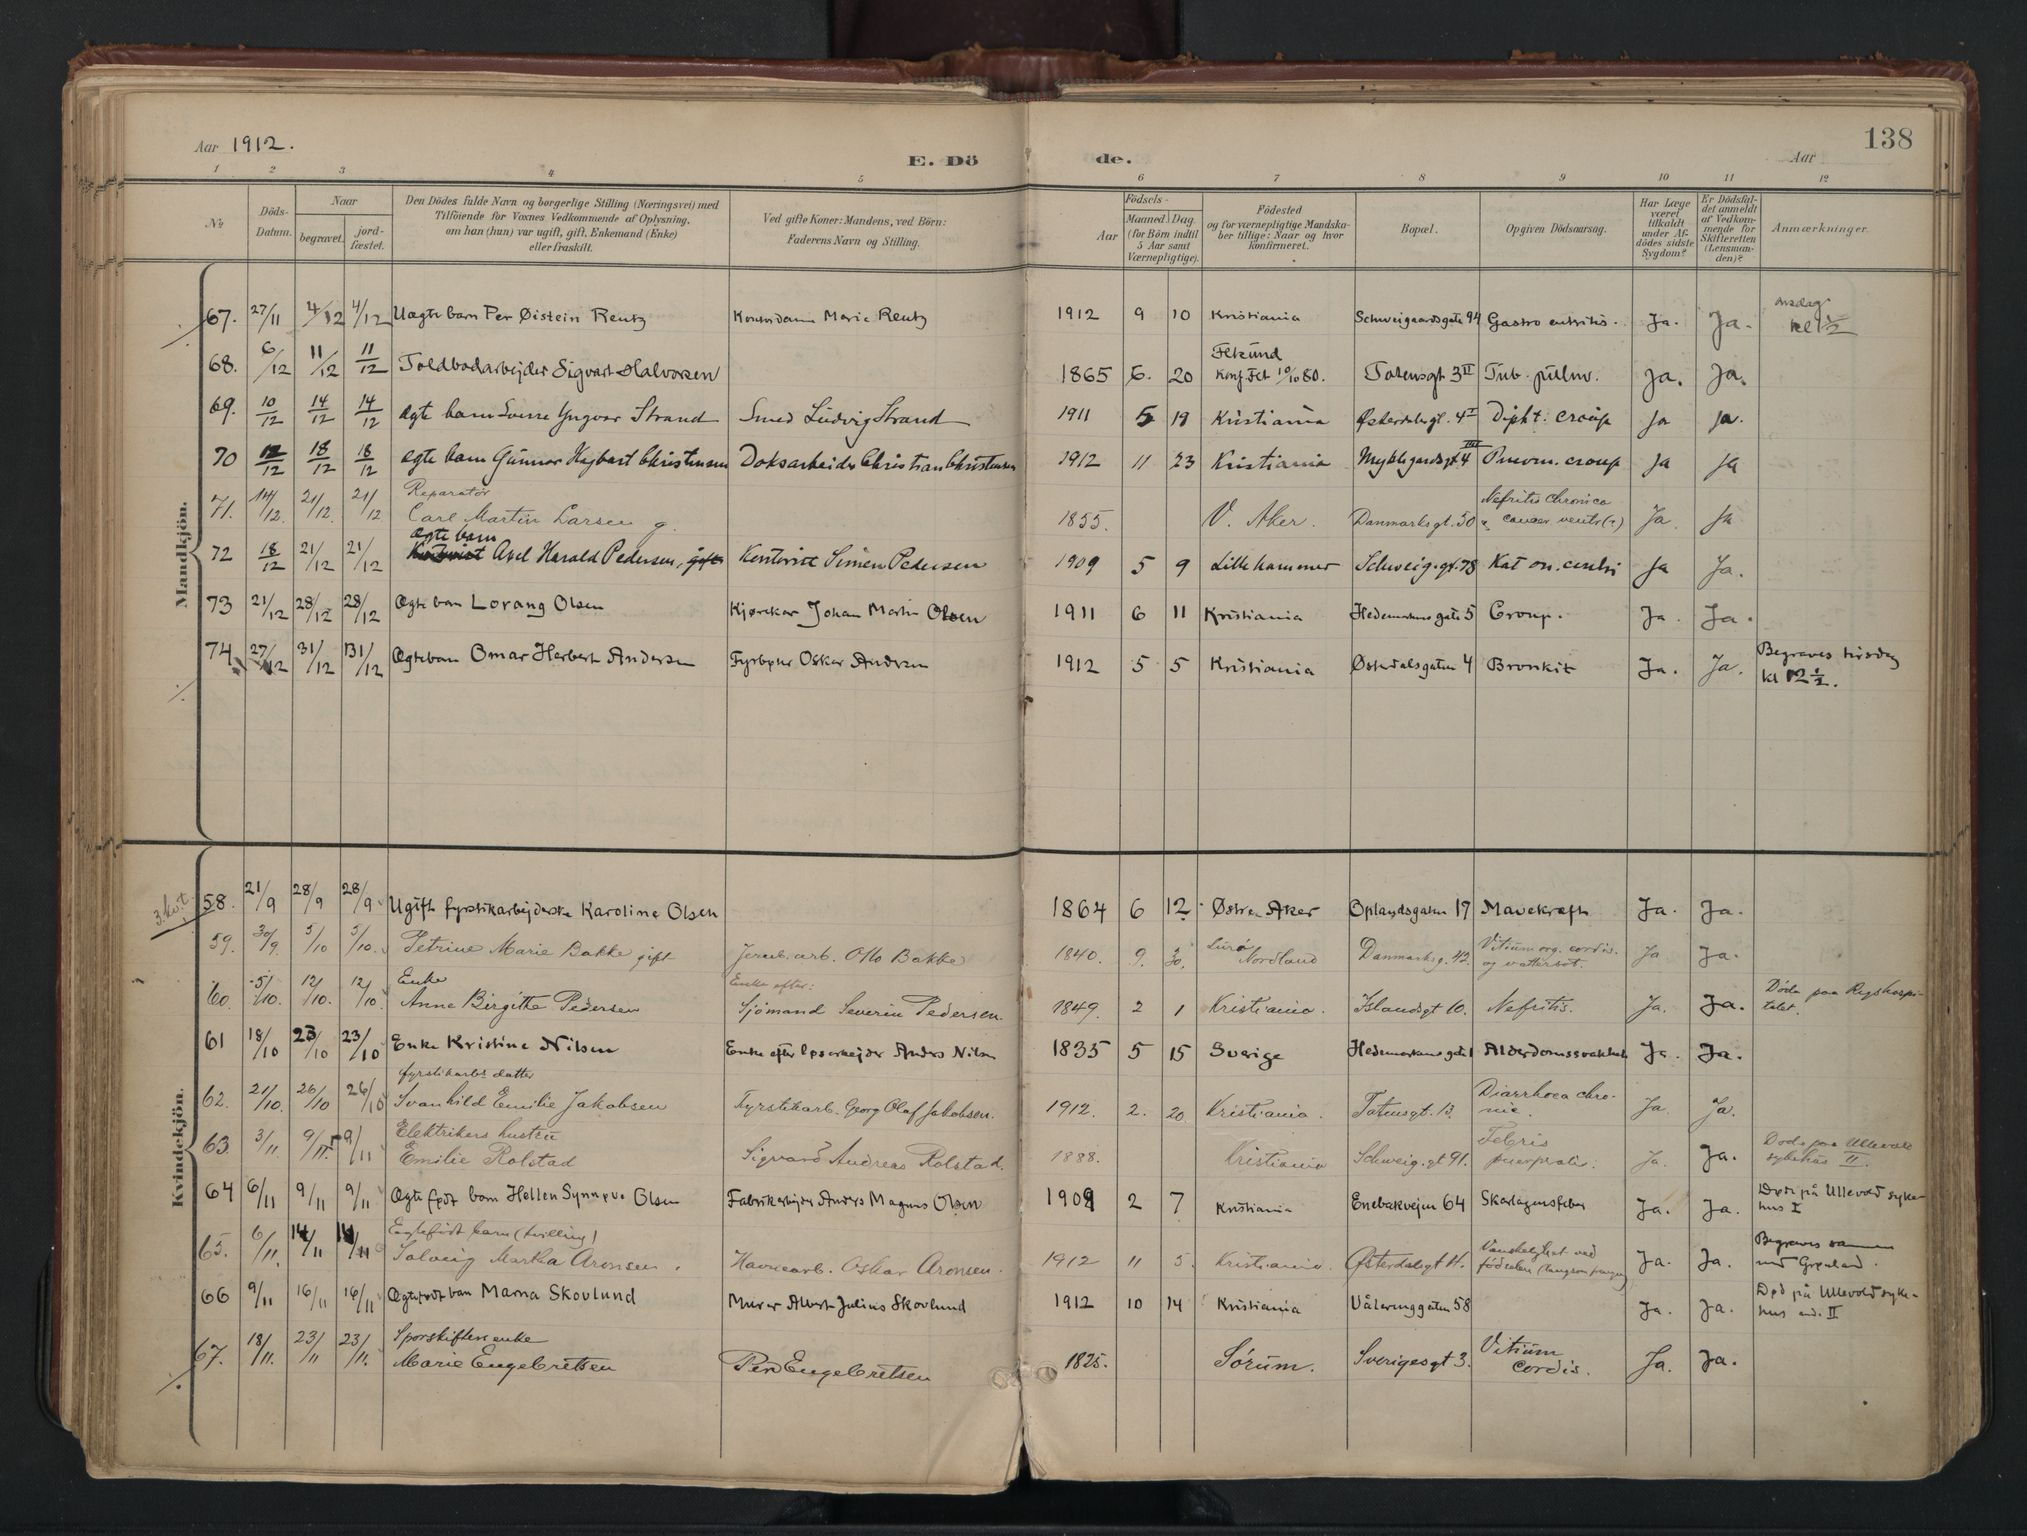 Aar 1912.
E. Dö
de.
Aar
138
1 2 3 4 5 6 7 8 9 10 11 12
No
Döds-Datum.
Naar
begravet.
jord-fæstet.
Den Dödes fulde Navn og borgerlige Stilling (Næringsvei) med
Tilföiende for Voxnes Vedkommende af Oplysning,
om han (hun) var ugift, gift, Enkemand (Enke)
eller fraskilt.
Ved gifte Koner: Mandens, ved Börn:
Faderens Navn og Stilling.
Födsels-
Aar
Maaned Dag
(for Börn indtil
5 Aar samt
Værnepligtige).
Födested
og for værnepligtige Mandska-
ber tillige: Naar og hvor
konfirmeret.
Bopæl.
Opgiven Dödsaarsag.
Har Læge
været
tilkaldt
under Af-
dödes sidste
Sygdom?
Er Dödsfal-
det anmeldt
af Vedkom-
mende for
Skifteretten
(Lensman-
den)?
Anmærkninger.
Mandkjön.
67. 27/11 4/12 4/12 Uægte barn Per Øistein Rentz Kontordame Marie Rentz 1912 9 10 Kristiania Schweigaardsgate 94 Gastro entritis. Ja. Ja. onsdag kl 1 1/2
68. 6/12 11/12 11/12 Toldbodarbejder Sigvart Halvorsen 1865 6. 20 Konf. 10/10 80. Totensgt 3 II Tub. pulm. Ja. Ja.
69. 10/12 14/12 14/12 Ægte barn Sverre Yngvar Strand Smed Ludvig Strand 1911 5 19 Kristiania Østerdalsgt. 4 I Dipht. croup Ja Ja.
70 12/12 18/12 18/12 Ægte barn Gunnar Hagbart Christensen Doksarbeider Christian Christensen 1912 11 23 Kristiania Myklegardsgt. 4 III Pneum. croup Ja Ja
71. 14/12. 21/12. 21/12 Reparatør
Carl Martin Larsen g. 1855. V. Aker. Danmarksgt. 50 Nefritis chronica cancer ventr (?) Ja. Ja
72 18/12 21/12 21/12 Ægte barn
Axel Harald Pedersen, gift Kontorist Simen Pedersen 1909 5 9 Lillehammer Schweig. gt. 78 Ja Ja.
73 21/12 28/12 28/12 Ægte barn Lorang Olsen Kjørekar Johan Martin Olsen 1911 6 11 Kristiania Hedemarkens gate 5 Croup. Ja. Ja.
74 27/12 31/12 31/12 Ægte barn Omar Herbert Andersen Fyrbøter Oskar Andersen 1912 5 5 Kristiania Østerdalsgaten 4 Bronkit Ja. Ja. Begraves tirsdag kl 12 1/2.
Kvindekjön.
3. kvt.
58. 21/9 28/9 28/9 Ugift fyrstikarbejderske Karoline Olsen 1864 6 12 Østre Aker Oplandsgaten 17 Mavekræft Ja. Ja.
59. 30/9 5/10 5/10. Petrine Marie Bakke gift Jernb. arb. Otto Bakke 1840. 9. 30. Lurø Nordland Danmarksg. 42. Vitium org. cordis. og vattersot. Ja Ja.
60. 5/10. 12/10. 12/10 Enke
Anne Birgitte Pedersen Enke efter: Sjömand Severin Pedersen. 1849. 2 1 Kristiania. Islandsgt 10. Nefritis. Ja. Ja. Døde paa Rigshospitalet.
61 18/10 23/10 23/10 Enke Kristine Nilsen Enke efter løsarbejder Anders Nilsen 1835 5 15 Sverige Hedemarkens gate 1 Alderdomssvakhet Ja. Ja.
62. 21/10. 26/10 26/10 fyrstikarbs datter
Svanhild Emilie Jakobsen Fyrstikarb. Georg Olaf Jakobsen. 1912. 2. 20. Kristiania. Totensgt. 13. Diarrhoea chronic. Ja. Ja.
63. 3/11. 9/11. 9/11 Elektrikers hustru
Emilie Rolstad Sigvard Andreas Rolstad. 1888. Kristiania Schweig. gt 91. Febris puerpralis. Ja. Ja. Døde paa Ullevold sykehus II.
64 6/11 9/11 9/11 Ægte født barn Hellen Synnøve Olsen Fabrikarbejder Anders Magnus Olsen 1909 2 7 Kristiania Enebakvejen 64 Skarlagensfeber Ja. Ja. Død på Ullevold sykehus I
65. 6/11. 14/11 14/11 Ægtefødt barn (tvilling)
Solveig Martha Aronsen. Havnearb. Oskar Aronsen. 1912 11 5. Kristiania. Østerdalsgt 11. Vanskelighet ved fødselen Ja. Ja. Begraves sammen med Grønland.
66 9/11 16/11 16/11 Ægtefødt barn Marna Skovlund Murer Albert Julius Skovlund 1912 10 14 Kristiania Vålerenggaten 58 Ja. Ja. Død på Ullevold sykehus avd. II
67. 18/11. 23/11 23/11. Sporskifters enke
Marie Engebretsen Per Engebretsen 1825. Sörum. Sverigesgt 3. Vitium cordis. Ja. Ja.